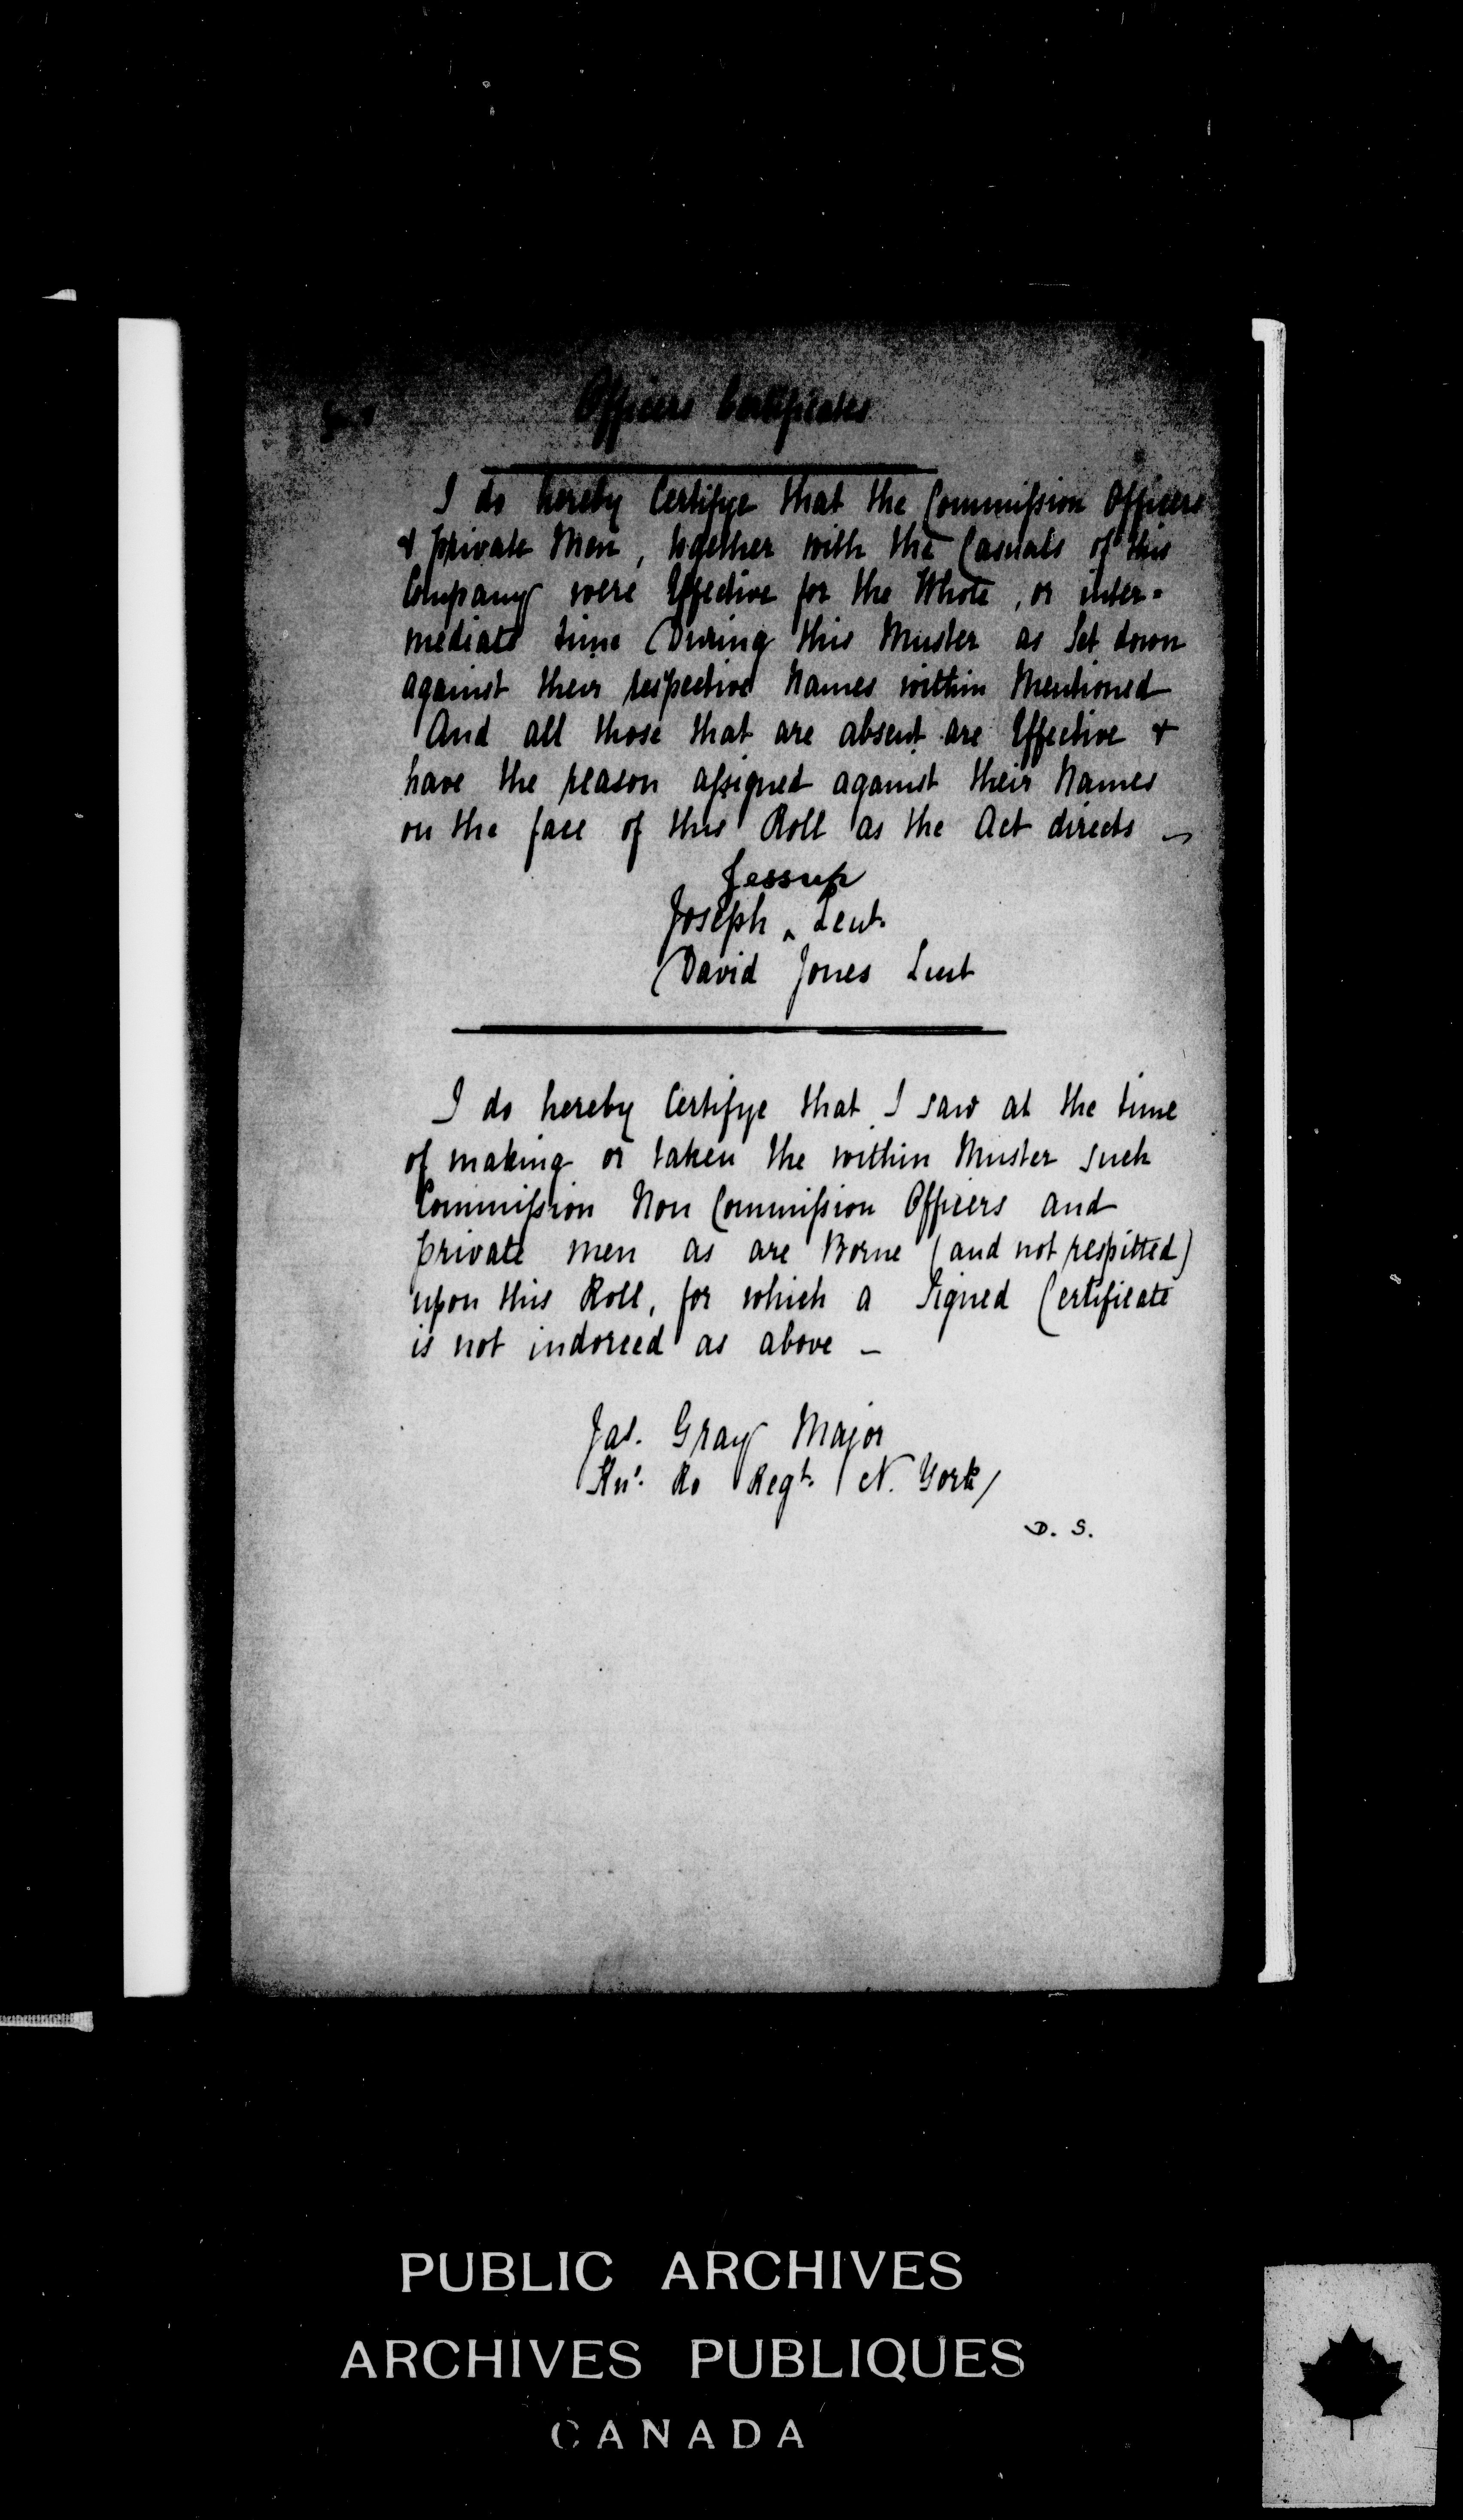 Officers Certificates
I do hereby Certifye that the Commission Officers
& private Men, together with the Casuals of this
Company were Effective for the Whole, or inter-
mediate time During this Muster as Set down
against their respective Names within Mentioned
And all those that are absent are Effective &
have the reason assigned against their Names
on the face of this Roll as the Act directs —
Jessup
Joseph ‸ Leut.
David Jones Leut
I do hereby Certifye that I saw at the time
of making or taken the within Muster such
Commission Non Commission Officers and
private men as are Borne (and not respitted)
upon this Roll, for which a Signed Certificate
is not indorced as above —
Jas. Gray Major
Ro Regt. N. York/
D. S.
PUBLIC ARCHIVES
ARCHIVES PUBLIQUES
CANADA